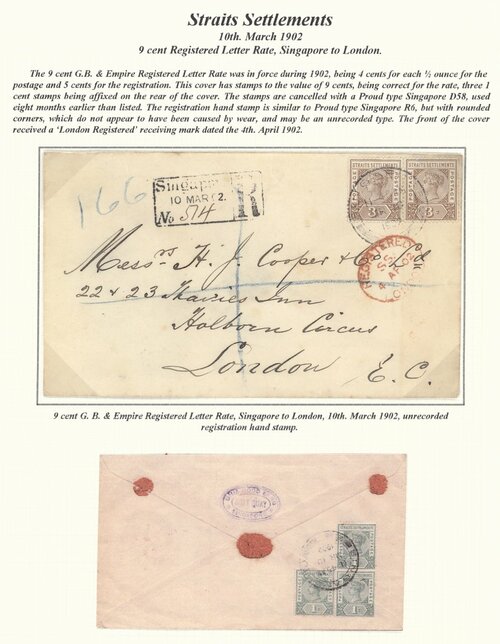 Straits Settlements
10th. March 1902
9 cent Registered Letter Rate, Singapore to London.
The 9 cent G.B. & Empire Registered Letter Rate was in force during 1902, being 4 cents for each ½ ounce for the
postage and 5 cents for the registration. This cover has stamps to the value of 9 cents, being correct for the rate, three 1
cent stamps being affixed on the rear of the cover. The stamps are cancelled with a Proud type Singapore D58, used
eight months earlier than listed. The registration hand stamp is similar to Proud type Singapore R6, but with rounded
corners, which do not appear to have been caused by wear, and may be an unrecorded type. The front of the cover
received a 'London Registered' receiving mark dated the 4th. April 1902.
166
Singapore
10 MAR 2.
R
No 514
STRAITS SETTLEMENTS STRAITS SETTLEMENTS
POSTAGE POSTAGE POSTAGE POSTAGE
3 3
REGISTERED
4 AP 02
Messrs H. J. Cooper & Co Ltd
22 & 23 Thavies Inn
Holborn Circus
London E. C.
9 cent G. B. & Empire Registered Letter Rate, Singapore to London, 10th. March 1902, unrecorded
registration hand stamp.
1 1